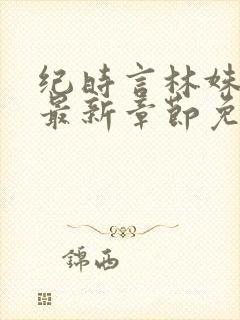 纪时言林姝
最新章节免
锦西